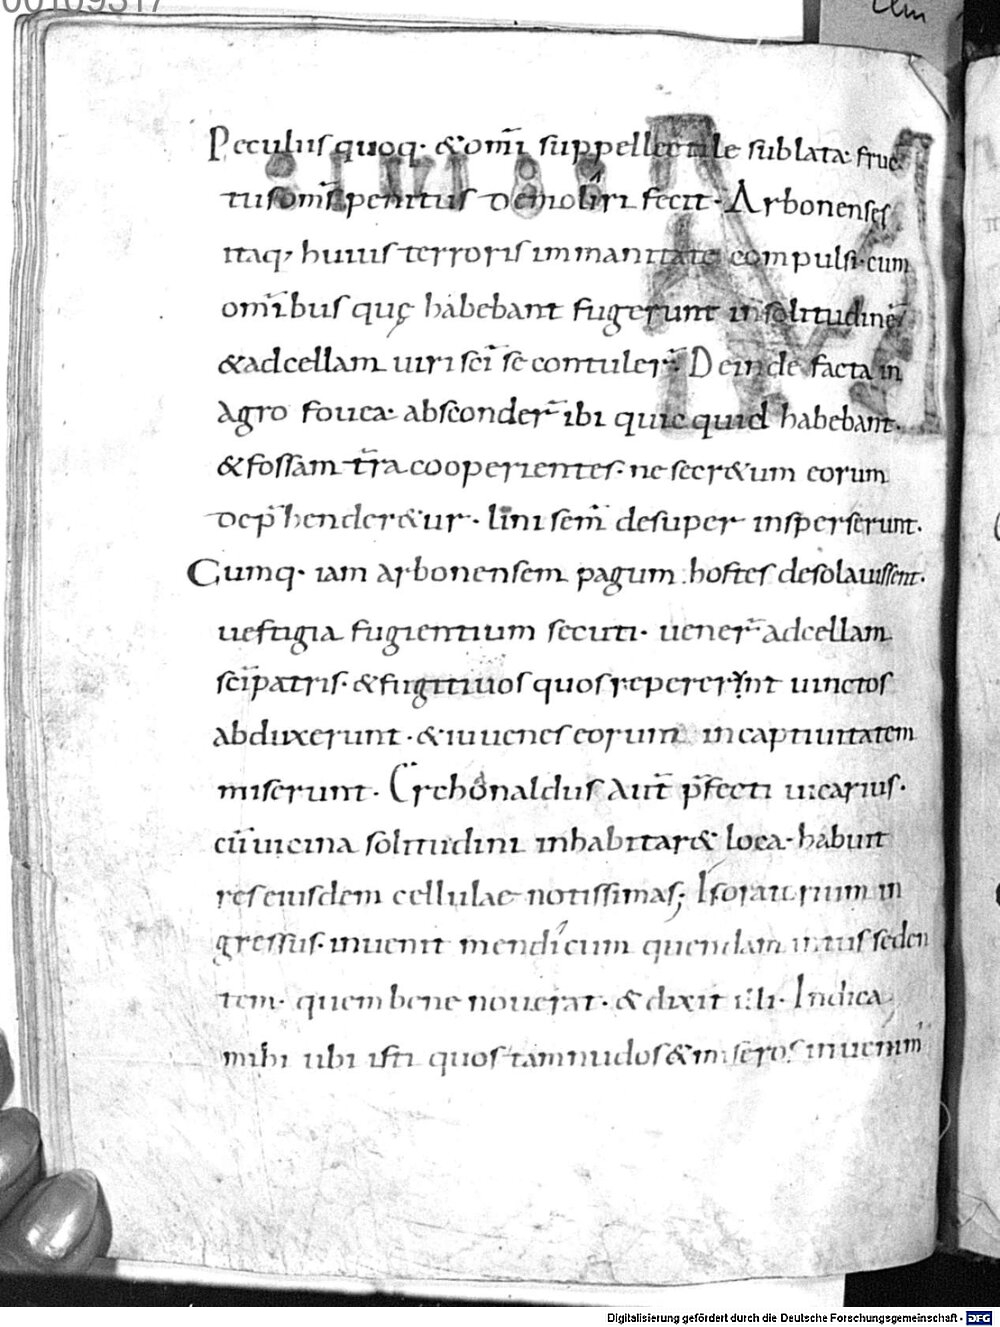 00109317
Clm
Peculiis quoq· & om̄i suppellectile sublata· fruc
tus om̄s penitus demoliri fecit· Arbonenses
itaq; huius terroris immanitate compulsi· cum
om̄ibus quę habebant fugerunt in solitudinē
& ad cellam uiri sc̄i se contuler̄· Deinde facta in
agro fouea· absconder̄ ibi quicquid habebant·
& fossam t̄ra cooperientes· ne secr&um eorum
dep̄hender&ur· lini sem̄ desuper insperserunt·
Cumq· iam arbonensem pagum hostes desolauissent·
uestigia fugientium secuti· uener̄ ad cellam
sc̄i patris· & fugitiuos quos repererunt uinctos
abduxerunt· & iuuenes eorum in captiuitatem
miserunt· Erchonaldus aut̄ p̄fecti uicarius·
cū uicina solitudini inhabitar& loca· habuit
res eiusdem cellulae notissimas; Is oratorium in
gressus· inuenit mendicum quendam intus seden
tem· quem bene nouerat· & dixit illi· Indica
mihi ubi isti quos tam nudos & miseros inuenim'
Digitalisierung gefördert durch die Deutsche Forschungsgemeinschaft - DFG